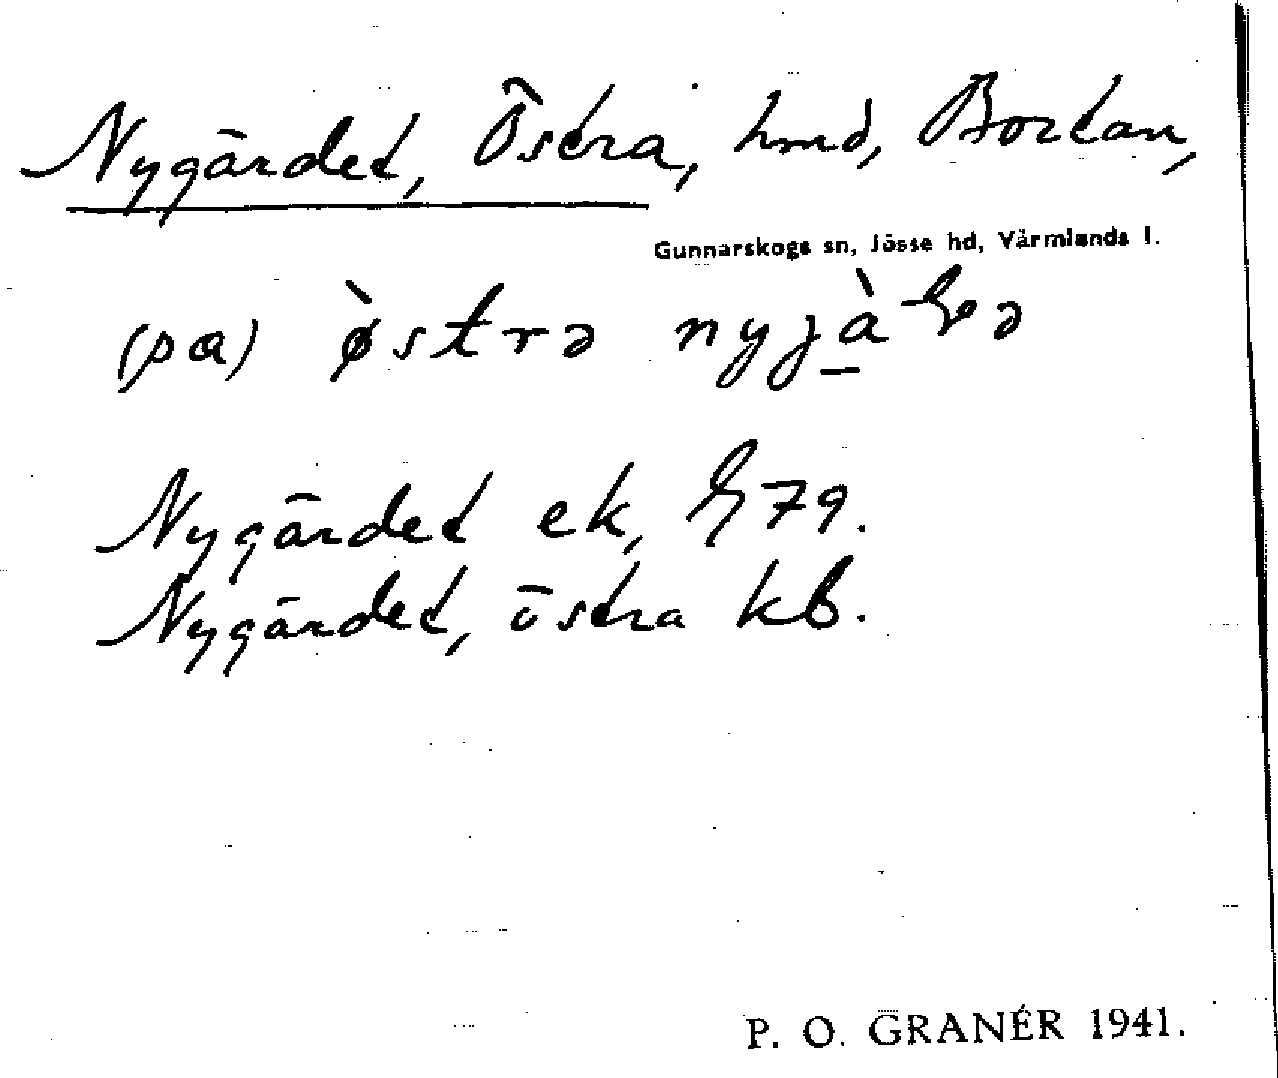 Nygärdet, Östra, hmd, Bortan,
Gunnarskogs sn, Jösse hd, Värmlands l.
(pa) ø̀strə
Nygärdet ek, G79.
Nygärdet, östra kb.
P. O. GRANÉR 1941.